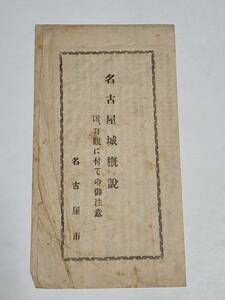 名古屋城概説
附、拝観に付ての御注意
名古屋市